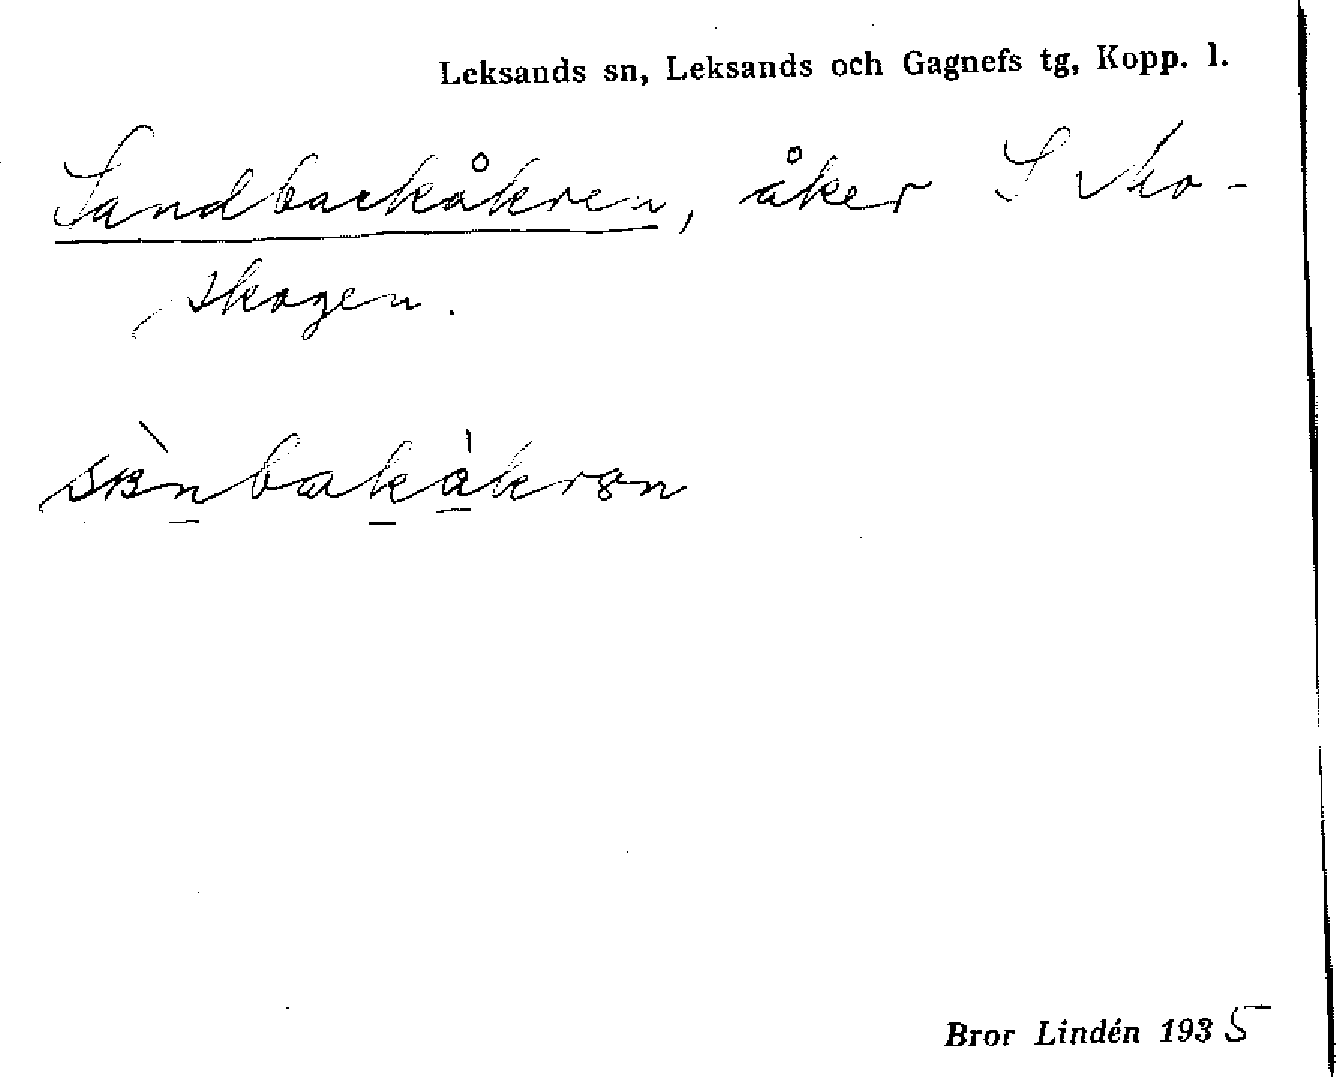 Leksands sn, Leksands och Gagnefs tg, Kopp. l.
Sandbackåkren, åker S Mo-
skogen.
Bror Lindén 1935